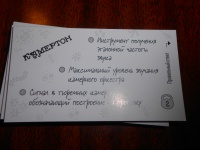 КАМЕРТОН
Инструмент получения
эталонной частоты
звука
Максимальный уровень звучания
камерного оркестра
Сигнал в тюремных
обозначающий построение